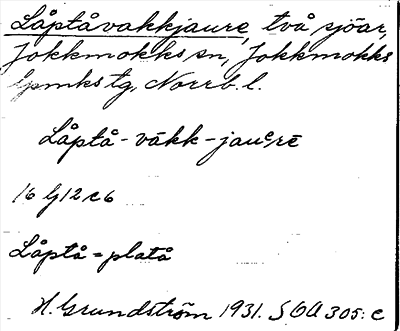 Låptåvakkjaure, två sjöar,
Jokkmokks sn, Jokkmokks
lpmks tg, Norrb. l.
Låptå-väkk-jauᵉrē
16 G 12 c 6
Låptå = platå
H. Grundström 1931. SOA 305: c